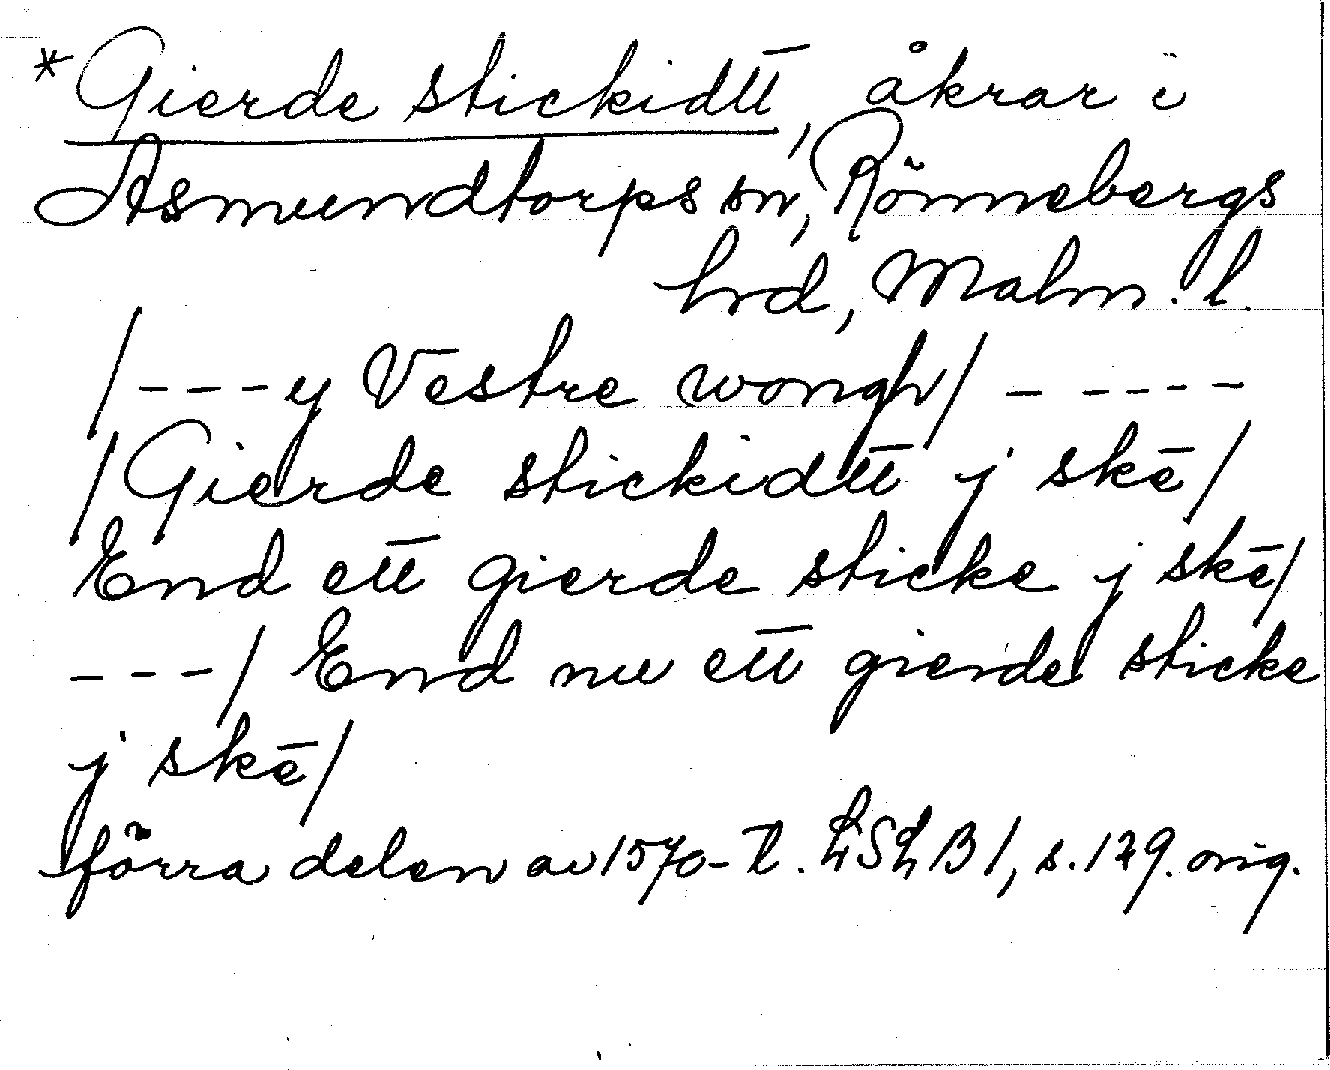 *Gierde stickidtt, åkrar i
Asmundtorps sn, Rönnebergs
hrd, Malm. l.
/---y Vestre wongh/ - - - - -
/Gierde stickidtt j skē/
End ett gierde sticke j skē/
---/ End nu ett gierde sticke
j skē/
förra delen av 1570-t. LSLB1, s. 179. orig.